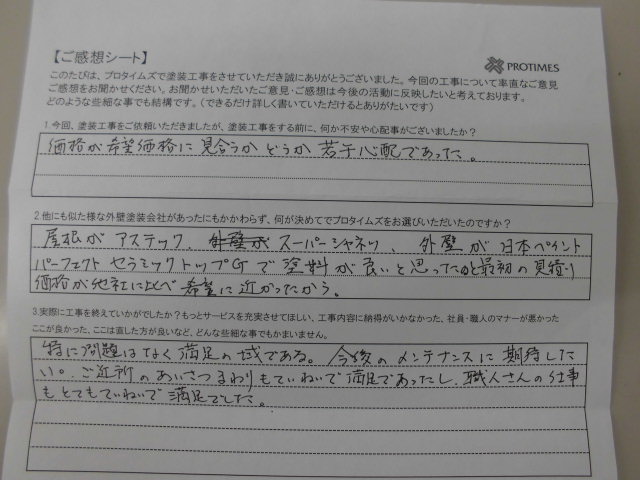 【ご感想シート】
PROTIMES
このたびは、プロタイムズで塗装工事をさせていただき誠にありがとうございました。今回の工事について率直なご意見
ご感想をお聞かせください。お聞かせいただいたご意見・ご感想は今後の活動に反映したいと考えております。
どのような些細な事でも結構です。(できるだけ詳しく書いていただけるとありがたいです)
1.今回、塗装工事をご依頼いただきましたが、塗装工事をする前に、何か不安や心配事がございましたか?
価格が希望価格に見合うかどうか若干心配であった。
2.他にも似た様な外壁塗装会社があったにもかかわらず、何が決めてでプロタイムズをお選びいただいたのですか?
屋根がアステック、スーパーシャネツ、外壁が日本ペイント
パーフェクトセラミックトップGで塗料が良いと思ったのと最初の見積り
価格が他社に比べ希望に近かったから。
3.実際に工事を終えていかがでしたか?もっとサービスを充実させてほしい、工事内容に納得がいかなかった、社員・職人のマナーが悪かった
ここが良かった、ここは直した方が良いなど、どんな些細な事でもかまいません。
特に問題はなく満足の域である。今後のメンテナンスに期待した
い。ご近所のあいさつまわりもていねいで満足であったし、職人さんの仕事
もとてもていねいで満足でした。